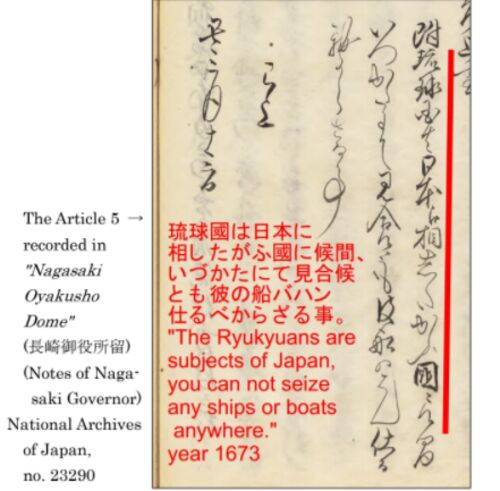 The Article 5 →
recorded in
"Nagasaki
Oyakusho
Dome"
(長崎御役所留)
(Notes of Naga-
saki Governor)
National Archives
of Japan,
no. 23290
附琉球国日本相したかふ國候間
いつかたにて見合候とも彼船
琉球國は日本に
相したがふ國に候間、
いづかたにて見合候
とも彼の船バハン
仕るべからざる事。
"The Ryukyuans are
subjects of Japan,
you can not seize
any ships or boats
anywhere."
year 1673